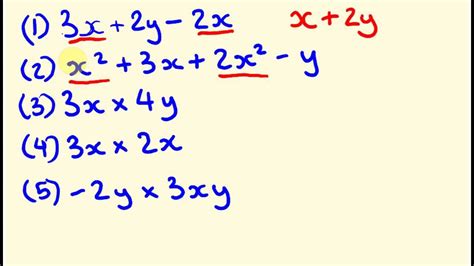 (1) 3x + 2y - 2x x + 2y
(2) x² + 3x + 2x² - y
(3) 3x × 4y
(4) 3x × 2x
(5) - 2y × 3xy